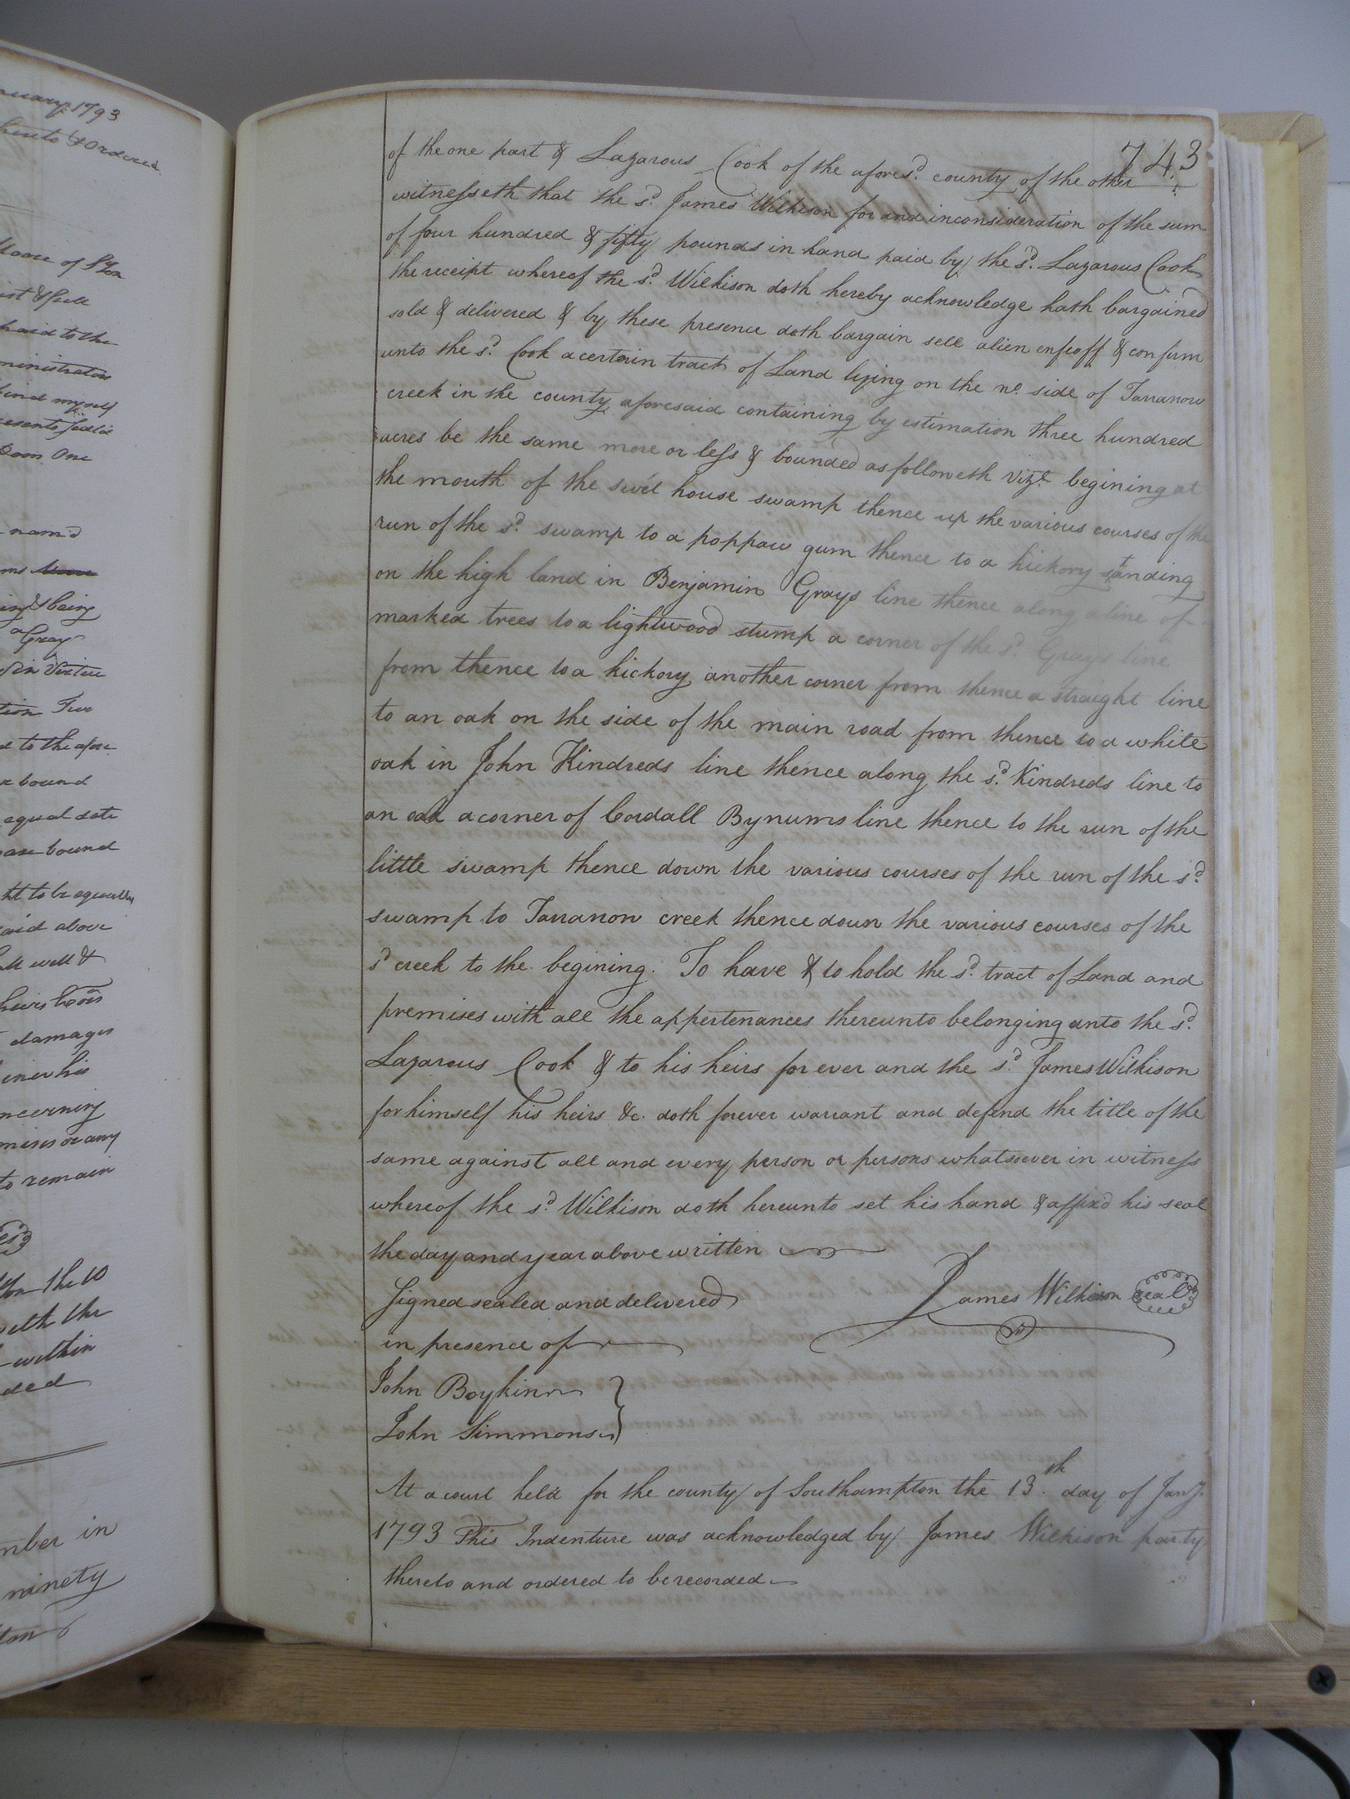 1793
& Ordered
of
paid to the
ministrators
find myself
One
nam'd
being
Gray
in Virtue
Two
to the afore
bound
equal
bound
to be equally
above
well &
heirs
damages
his
concerning
or any
to remain
the 10
with the
within
ded
mber in
ninety
743
of the one part & Lazarous Cook of the afores.d county of the other
witnesseth that the s.d James Wilkison for and inconsideration of the sum
of four hundred & fifty pounds in hand paid by the s.d Lazarous Cook
the receipt whereof the s.d Wilkison doth hereby acknowledge hath bargained
sold & delivered & by these presence doth bargain sell alien enfeoff & confirm
unto the s.d Cook a certain tract of Land lying on the no. side of Tarranow
creek in the county aforesaid containing by estimation three hundred
acres be the same more or less & bounded as followeth Viz.t begining at
the mouth of the house swamp thence up the various courses of the
run of the s.d swamp to a poppaw gum thence to a hickory standing
on the high land in Benjamin Grays line thence along a line of
marked trees to a lightwood stump a corner of the s.d Grays line
from thence to a hickory another corner from thence a straight line
to an oak on the side of the main road from thence to a white
oak in John Kindreds line thence along the s.d Kindreds line to
an oak a corner of Cordall Bynums line thence to the run of the
little swamp thence down the various courses of the run of the s.d
swamp to Tarranow creek thence down the various courses of the
s.d creek to the begining. To have & to hold the s.d tract of Land and
premises with all the appertenances thereunto belonging unto the s.d
Lazarous Cook & to his heirs for ever and the s.d James Wilkison
for himself his heirs &c. doth forever warrant and defend the title of the
same against all and every person or persons whatsoever in witness
whereof the s.d Wilkison doth hereunto set his hand & affixd his seal
the day and year above written
Signed sealed and delivered James Wilkison seal
in presence of
John Boykin
John Simmons
At a court held for the county of Southampton the 13.th day of Jan.y
1793 This Indenture was acknowledged by James Wilkison party
thereto and ordered to be recorded